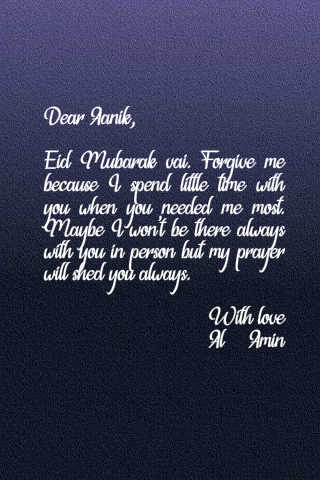 Dear Aanik,
Eid Mubarak vai. Forgive me
because I spend little time with
you when you needed me most.
Maybe I won't be there always
with you in person but my prayer
will shed you always.
With love
Al Amin